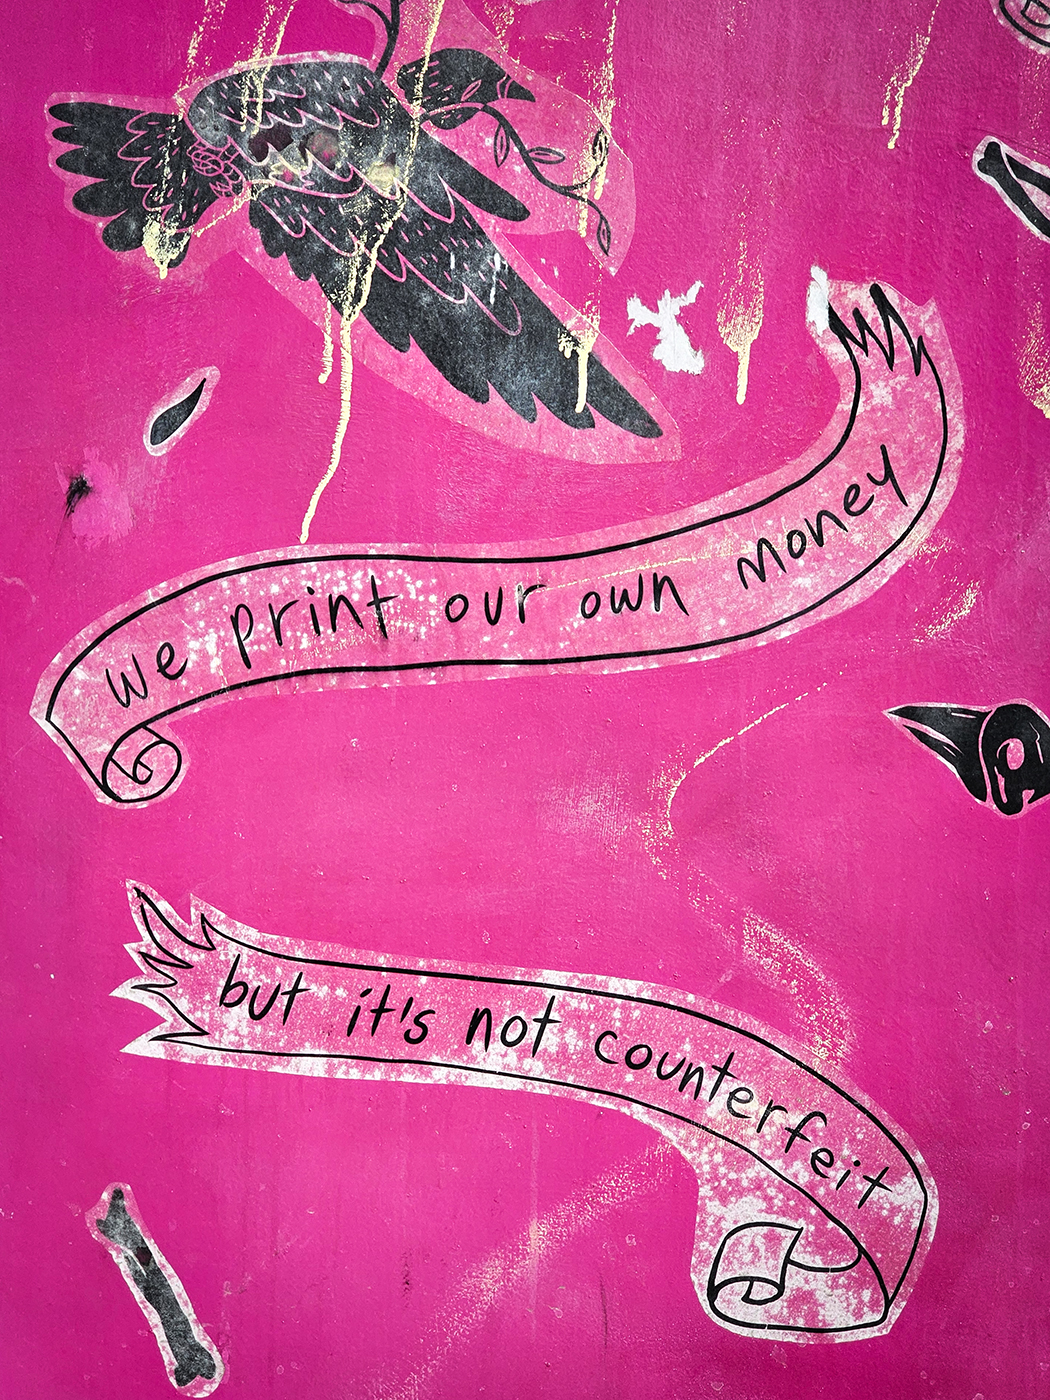 we print our own money
but it's not counterfeit